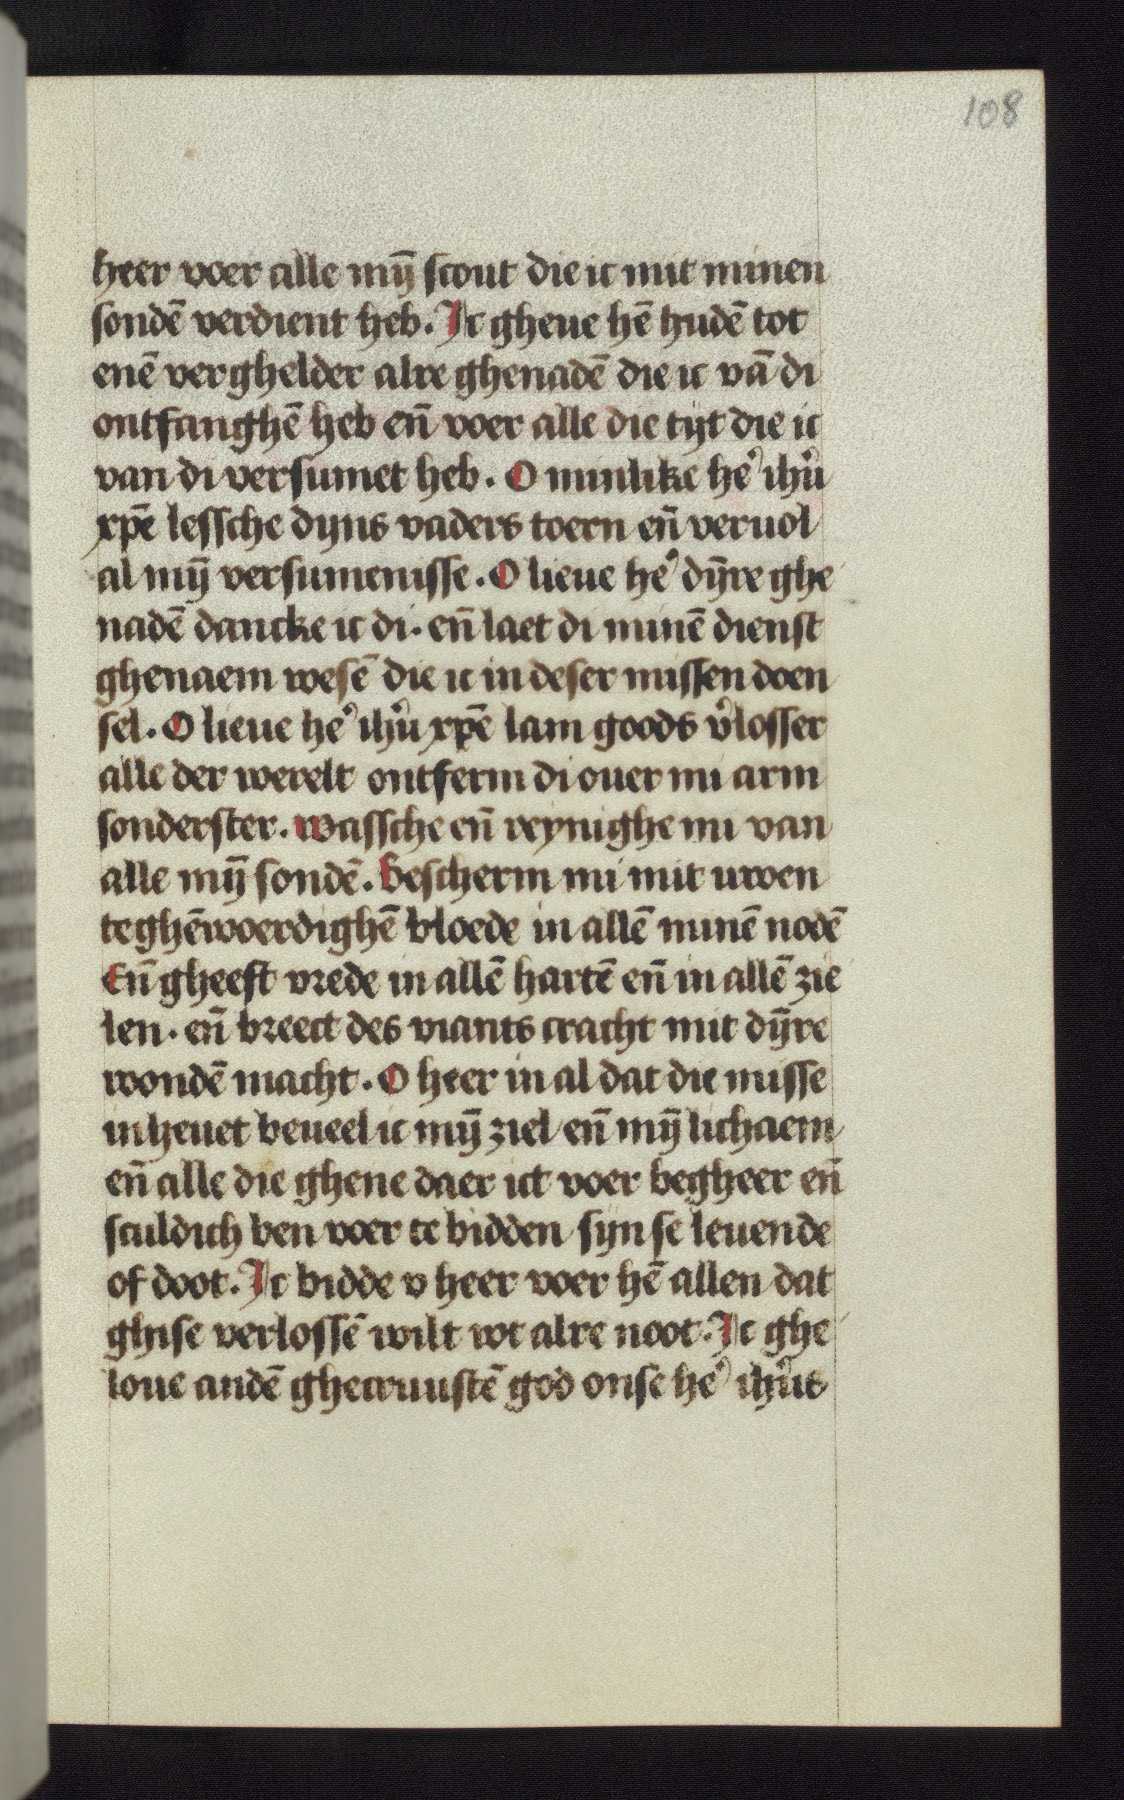 108
heer voer alle mÿ̄ scout die ic mit minen
sondē verdient heb. Ic gheue hē hudē tot
enē verghelder alre ghenadē die ic vā di
ontfanghē heb en̄ voer alle die tijt die ic
van di versumet heb. O minlike he᷒ ihu᷒
xp̄e lessche dijns vaders toern en̄ veruol
al mÿ̄ versumenisse. O lieue he᷒ dÿ̄re ghe
nadē dancke ic di. en̄ laet di minē dienst
ghenaem wesē die ic in deser missen doen
sel. O lieue he᷒ ihu᷒ xp̄e lam goods v᷒losser
alle der werelt ontferm di ouer mi arm
sonderster. wassche en̄ reynighe mi van
alle mÿ̄ sondē. bescherm mi mit uwen
teghēwoerdighē bloede in allē minē nodē
En̄ gheeft vrede in allē hartē en̄ in allē zie
len. en̄ breect des viants cracht mit dÿ̄re
wondē macht. O heer in al dat die misse
inheuet beueel ic mÿ̄ ziel en̄ mÿ̄ lichaem
en̄ alle die ghene daer ict voer begheer en̄
sculdich ben voer te bidden sijn se leuende
of doot. Ic bidde v heer voer hē allen dat
ghise verlossē wilt wt alre noot. Ic ghe
loue andē ghecruustē god onse he᷒ ihu᷒s